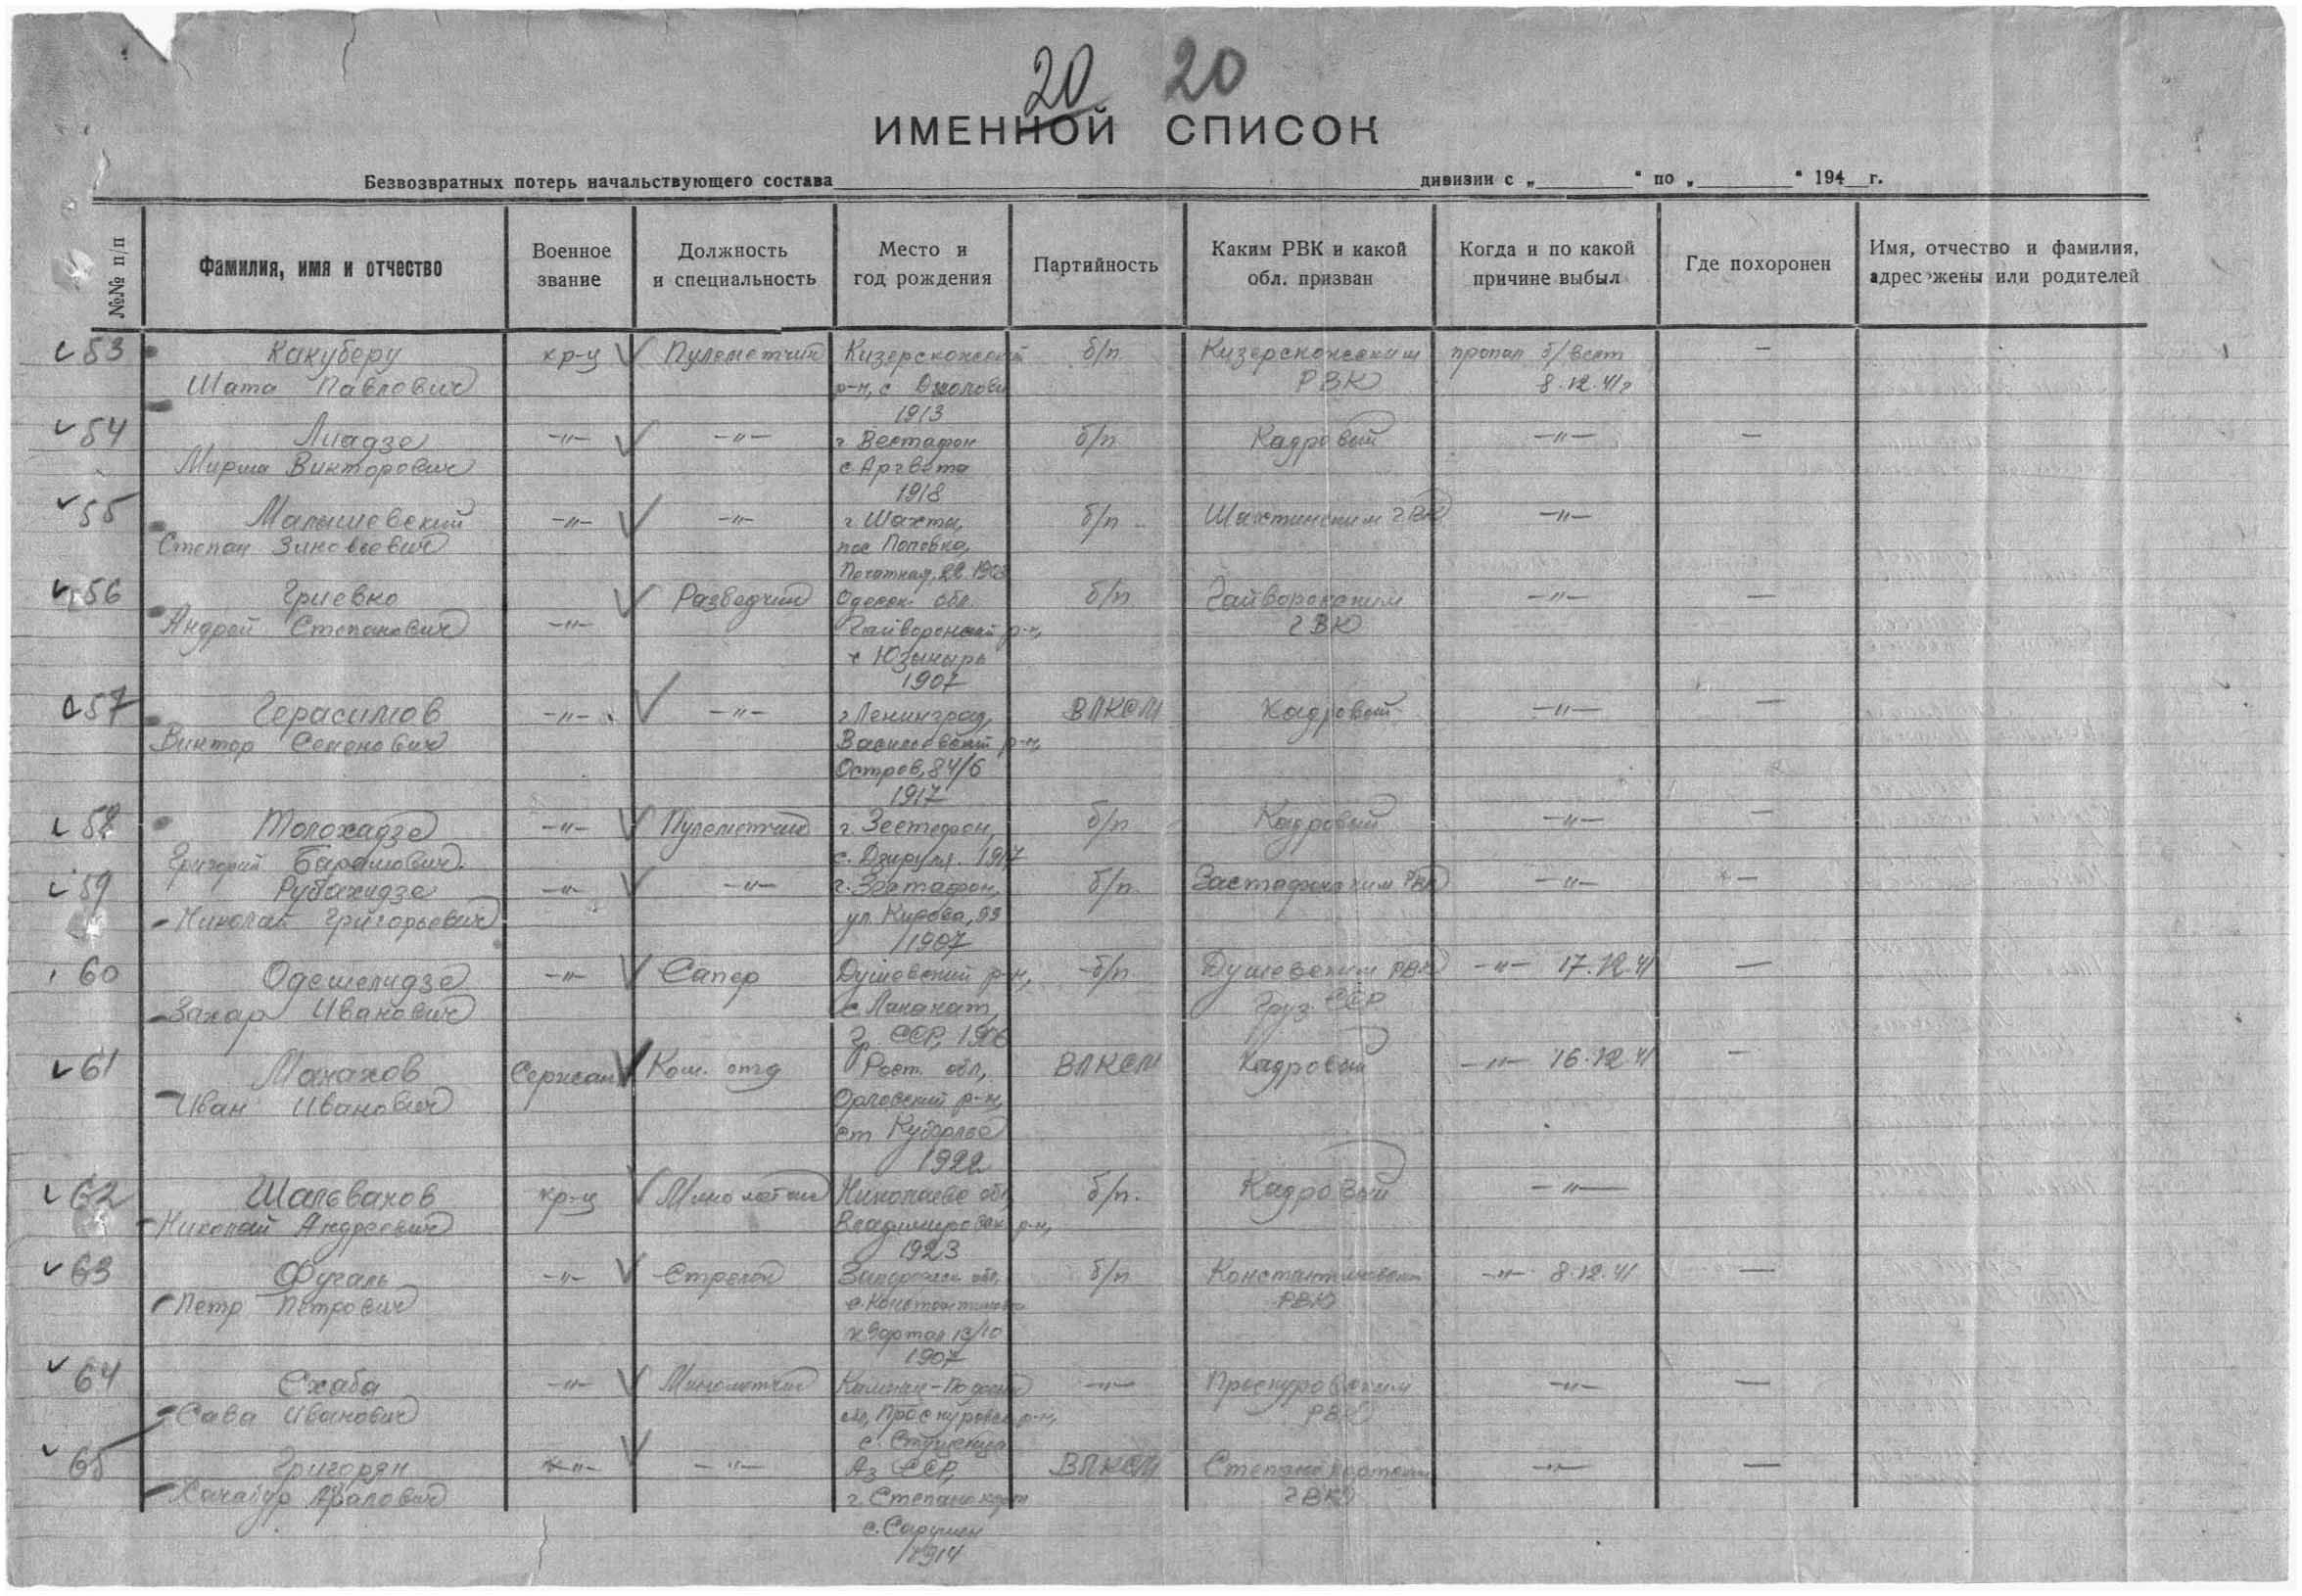 20 20
ИМЕННОЙ СПИСОК
Безвозвратных потерь начальствующего состава дивизии с „ “ по „ “ 194 г.
№№ п/п
Фамилия, имя и отчество
Военное звание
Должность и специальность
Место и год рождения
Партийность
Каким РВК и какой обл. призван
Когда и по какой причине выбыл
Где похоронен
Имя, отчество и фамилия, адрес жены или родителей
53 Какуберу кр-ц Пулеметчик б/п пропал б/вест —
Шата Павлович р-н, с РВК 8.12.41г
1913
54 Лиадзе -"- -"- г Вестафон б/п Кадровый -"- —
Мирша Викторович с Аргвета
1918
55 Малышевский -"- -"- г Шахты, б/п Шахтинским ГВК -"-
Степан Зиновьевич пос Поповка,
22 1908
56 Гриевко Разведчик Одесск. обл. б/п Гайворонским -"- —
Андрей Степанович -"- Гайворонский р-н, ГВК
с Юзынырь
1907
57 Герасимов -"- -"- г Ленинград, ВЛКСМ Кадровый -"- —
Виктор Семенович р-н,
Остров, 84/6
1917
58 Толохадзе -"- Пулеметчик г. Зестафон, б/п Кадровый -"- —
Григорий с. Дзирула. 1917
59 Рубахидзе -"- -"- г. Зестафон, б/п. РВК -"- —
Николай Григорьевич ул. Кирова, 99
1907
60 Одешелидзе -"- Сапер Душевский р-н, б/п Душевским РВК -"- 17.12.41 —
Захар Иванович Груз. ССР
Гр. ССР, 1906
61 Манахов Сержант Ком. отд Рост. обл, ВЛКСМ Кадровый -"- 16.12.41 —
Иван Иванович Орловский р-н,
ст Куберле
1922
62 Шальвахов кр-ц Николаевс обл б/п. Кадровый -"-
Николай Андреевич р-н,
1923
63 Фугаль -"- Стрелок обл, б/п -"- 8.12.41 —
Петр Петрович с. Константиновка РВК
квартал 13/10
1907
64 Схаба -"- Минометчик -"- Проскуровским -"- —
Сава Иванович р-н, РВК
65 Григорян -"- -"- Аз ССР, ВЛКСМ -"- —
г. Степанокерт ГВК
с.
1914